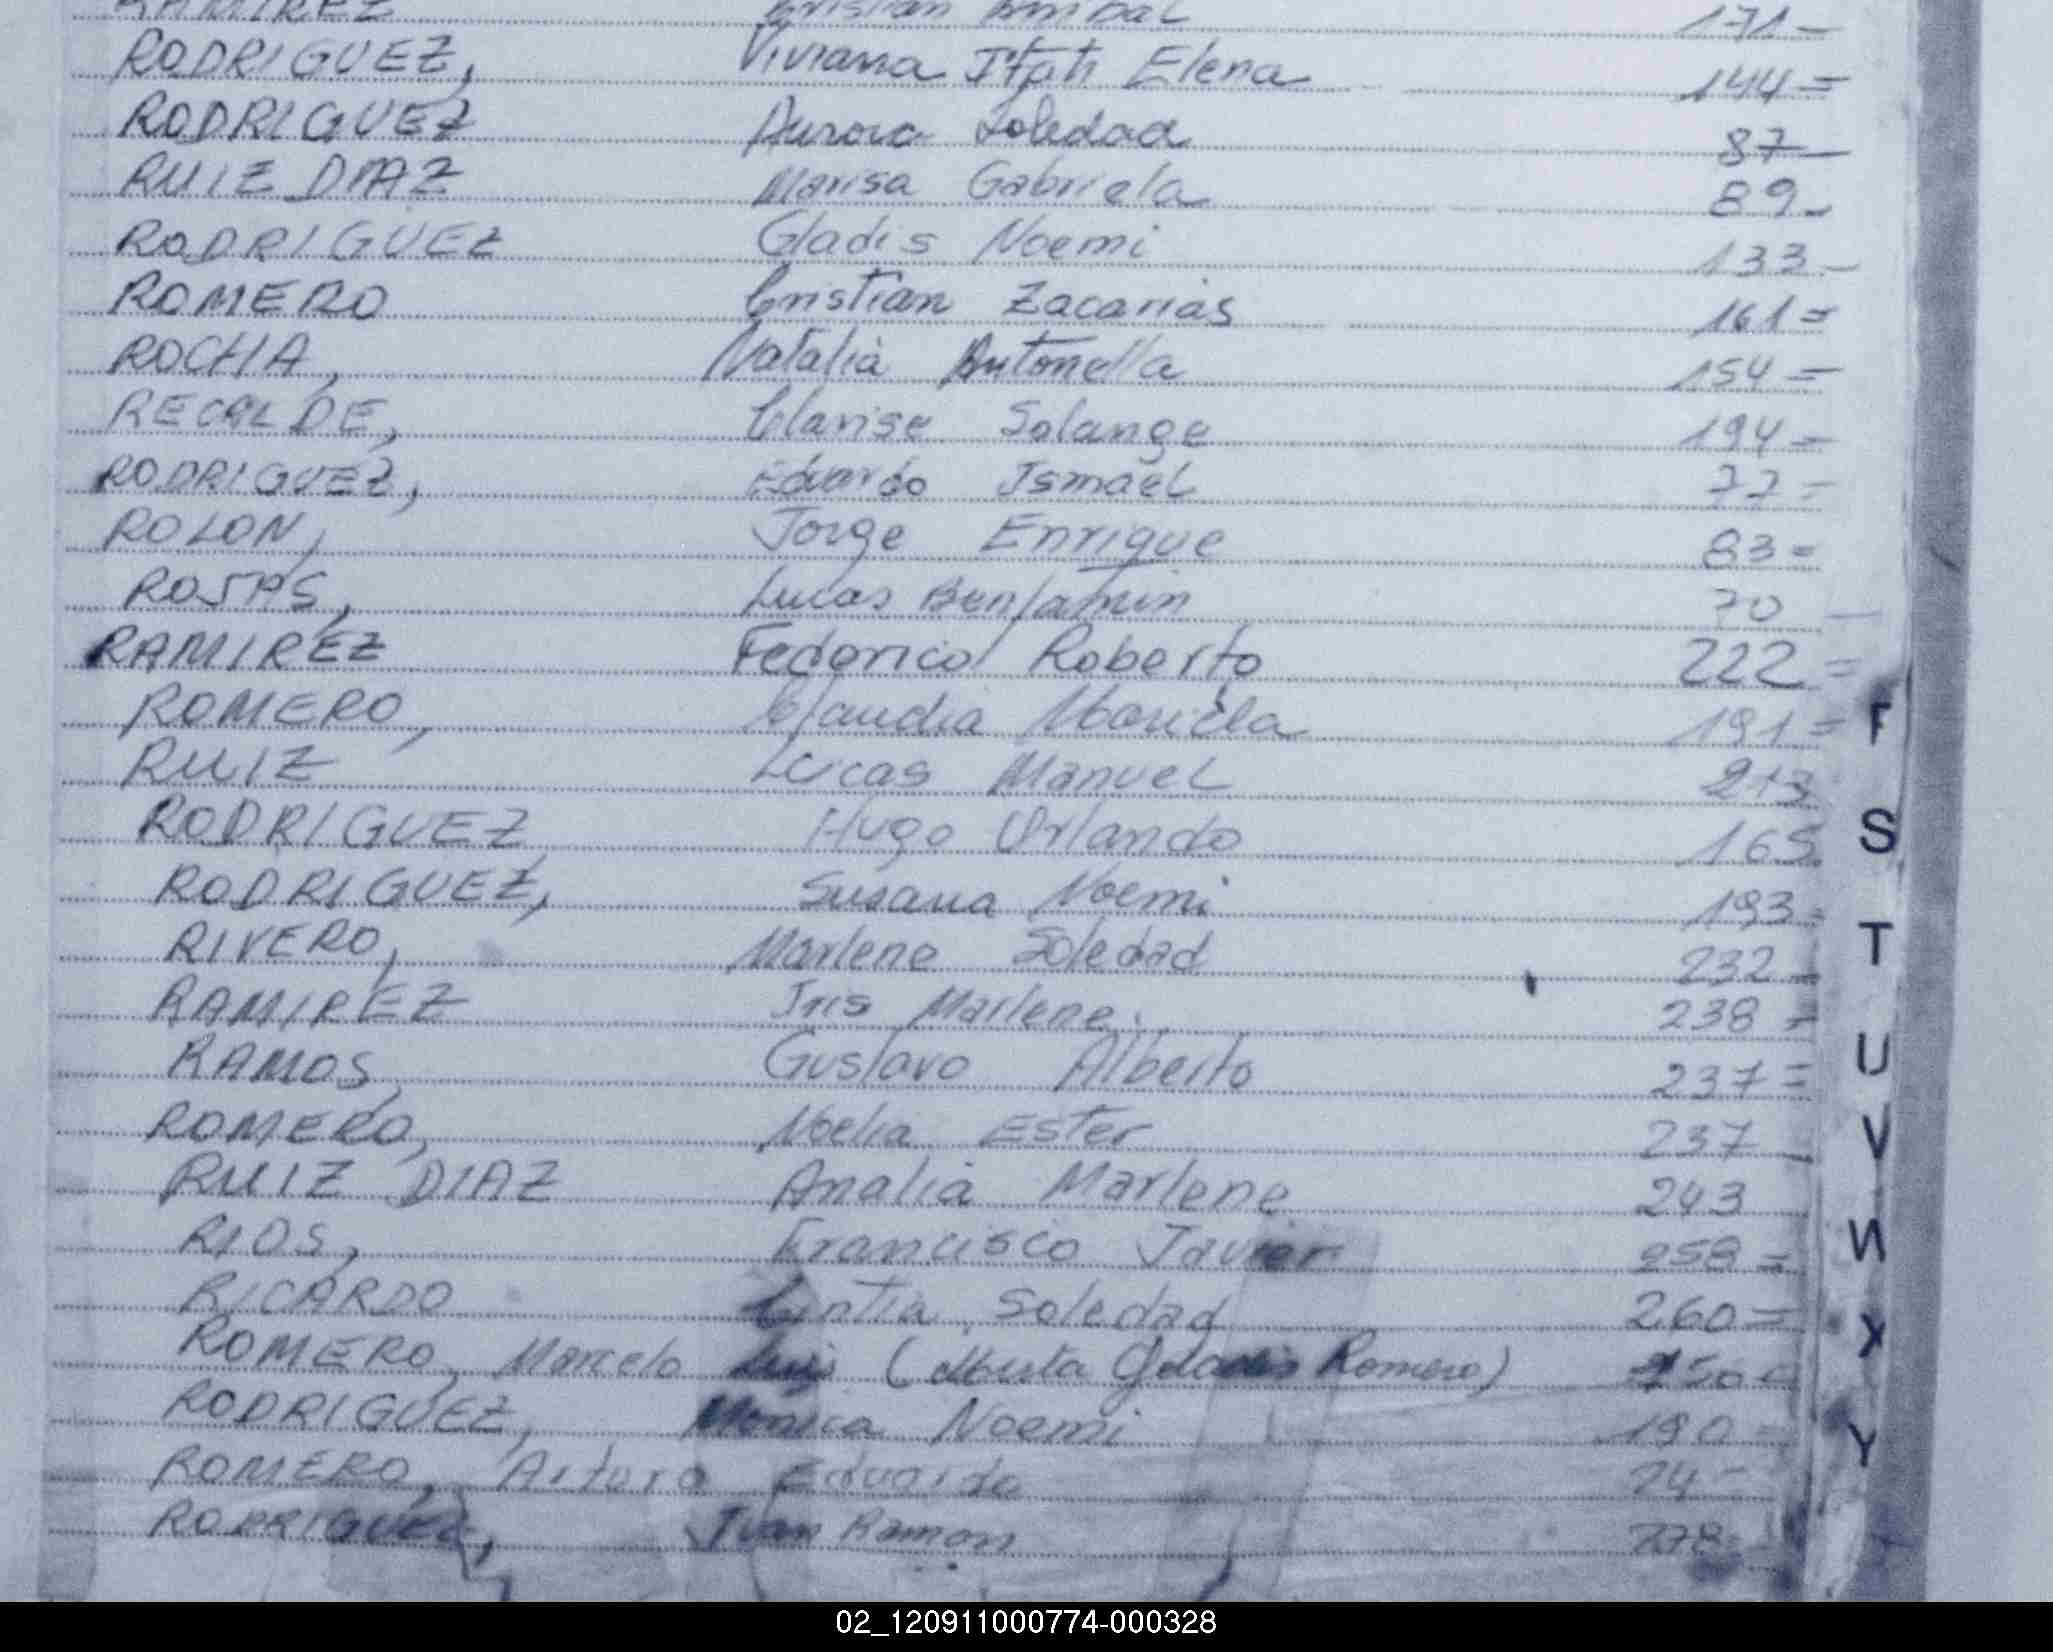 RAMIREZ Cristian Anibal 171-
RODRIGUEZ, Viviana Itati Elena 144=
RODRIGUEZ Aurora Soledad 87-
RUIZ DIAZ Marisa Gabriela 89-
RODRIGUEZ Gladis Noemi 133-
ROMERO Cristian Zacarias 161=
ROCHA, Natalia Antonella 154=
RECALDE, Clarise Solange 194=
RODRIGUEZ, Eduardo Ismael 77=
ROLON, Jorge Enrique 83=
ROJAS, Lucas Benjamin 70-
RAMIREZ Federico Roberto 222=
ROMERO, Claudia Mariela 191=
RUIZ Lucas Manuel 213
RODRIGUEZ Hugo Orlando 165
RODRIGUEZ, Susana Noemi 193-
RIVERO, Marlene Soledad 232=
RAMIREZ Iris Marlene. 238=
RAMOS, Gustavo Alberto 237=
ROMERO, Noelia Ester 237
RUIZ DIAZ Analia Marlene 243
RIOS, Francisco Javier 258=
RICARDO Cintia Soledad 260=
ROMERO, Marcelo Luis ( Romero)
RODRIGUEZ, Monica Noemi 190=
ROMERO, Arturo Eduardo 24=
RODRIGUEZ, Ivan Ramon
F
S
T
U
V
W
X
Y
02_120911000774-000328